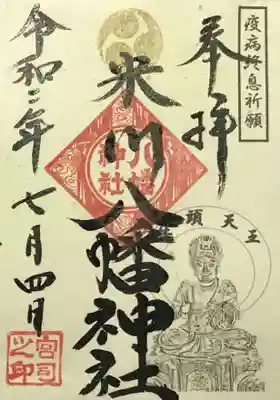 疫病終息祈願
奉拝
米川八幡神社
八幡神社
牛頭天王
令和二年七月四日
宮司之印